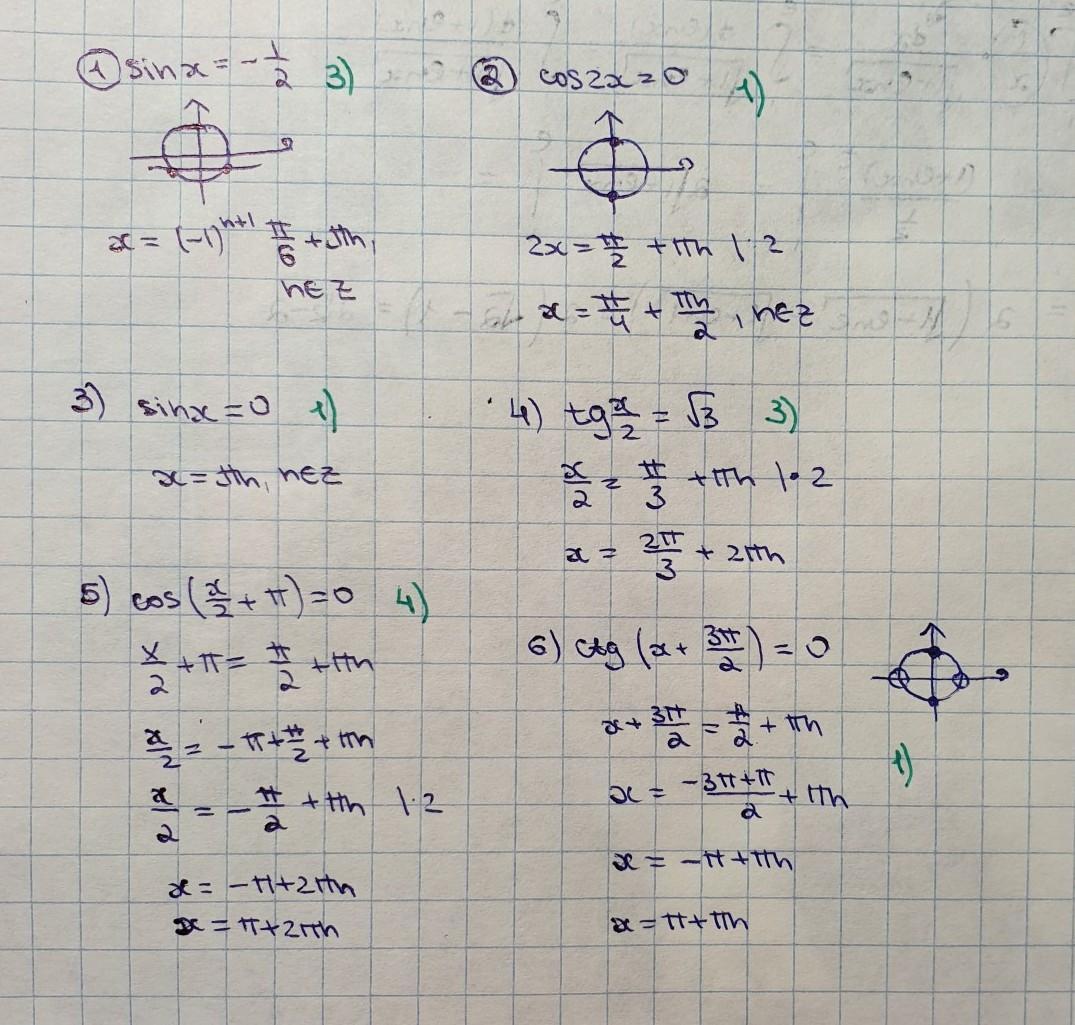 ① sin x = - 1/2 3)
x = (-1)^(n+1) π/6 + πn,
n∈Z
② cos2x = 0 1)
2x = π/2 + πn |:2
x = π/4 + πn/2, n∈Z
3) sinx = 0 1)
x = πn, n∈Z
4) tg x/2 = √3 3)
x/2 = π/3 + πn |•2
x = 2π/3 + 2πn
5) cos(x/2 + π) = 0 4)
x/2 + π = π/2 + πn
x/2 = -π + π/2 + πn
x/2 = -π/2 + πn |·2
x = -π + 2πn
x = π + 2πn
6) ctg (x + 3π/2) = 0
x + 3π/2 = π/2 + πn
1)
x = (-3π+π)/2 + πn
x = -π + πn
x = π + πn